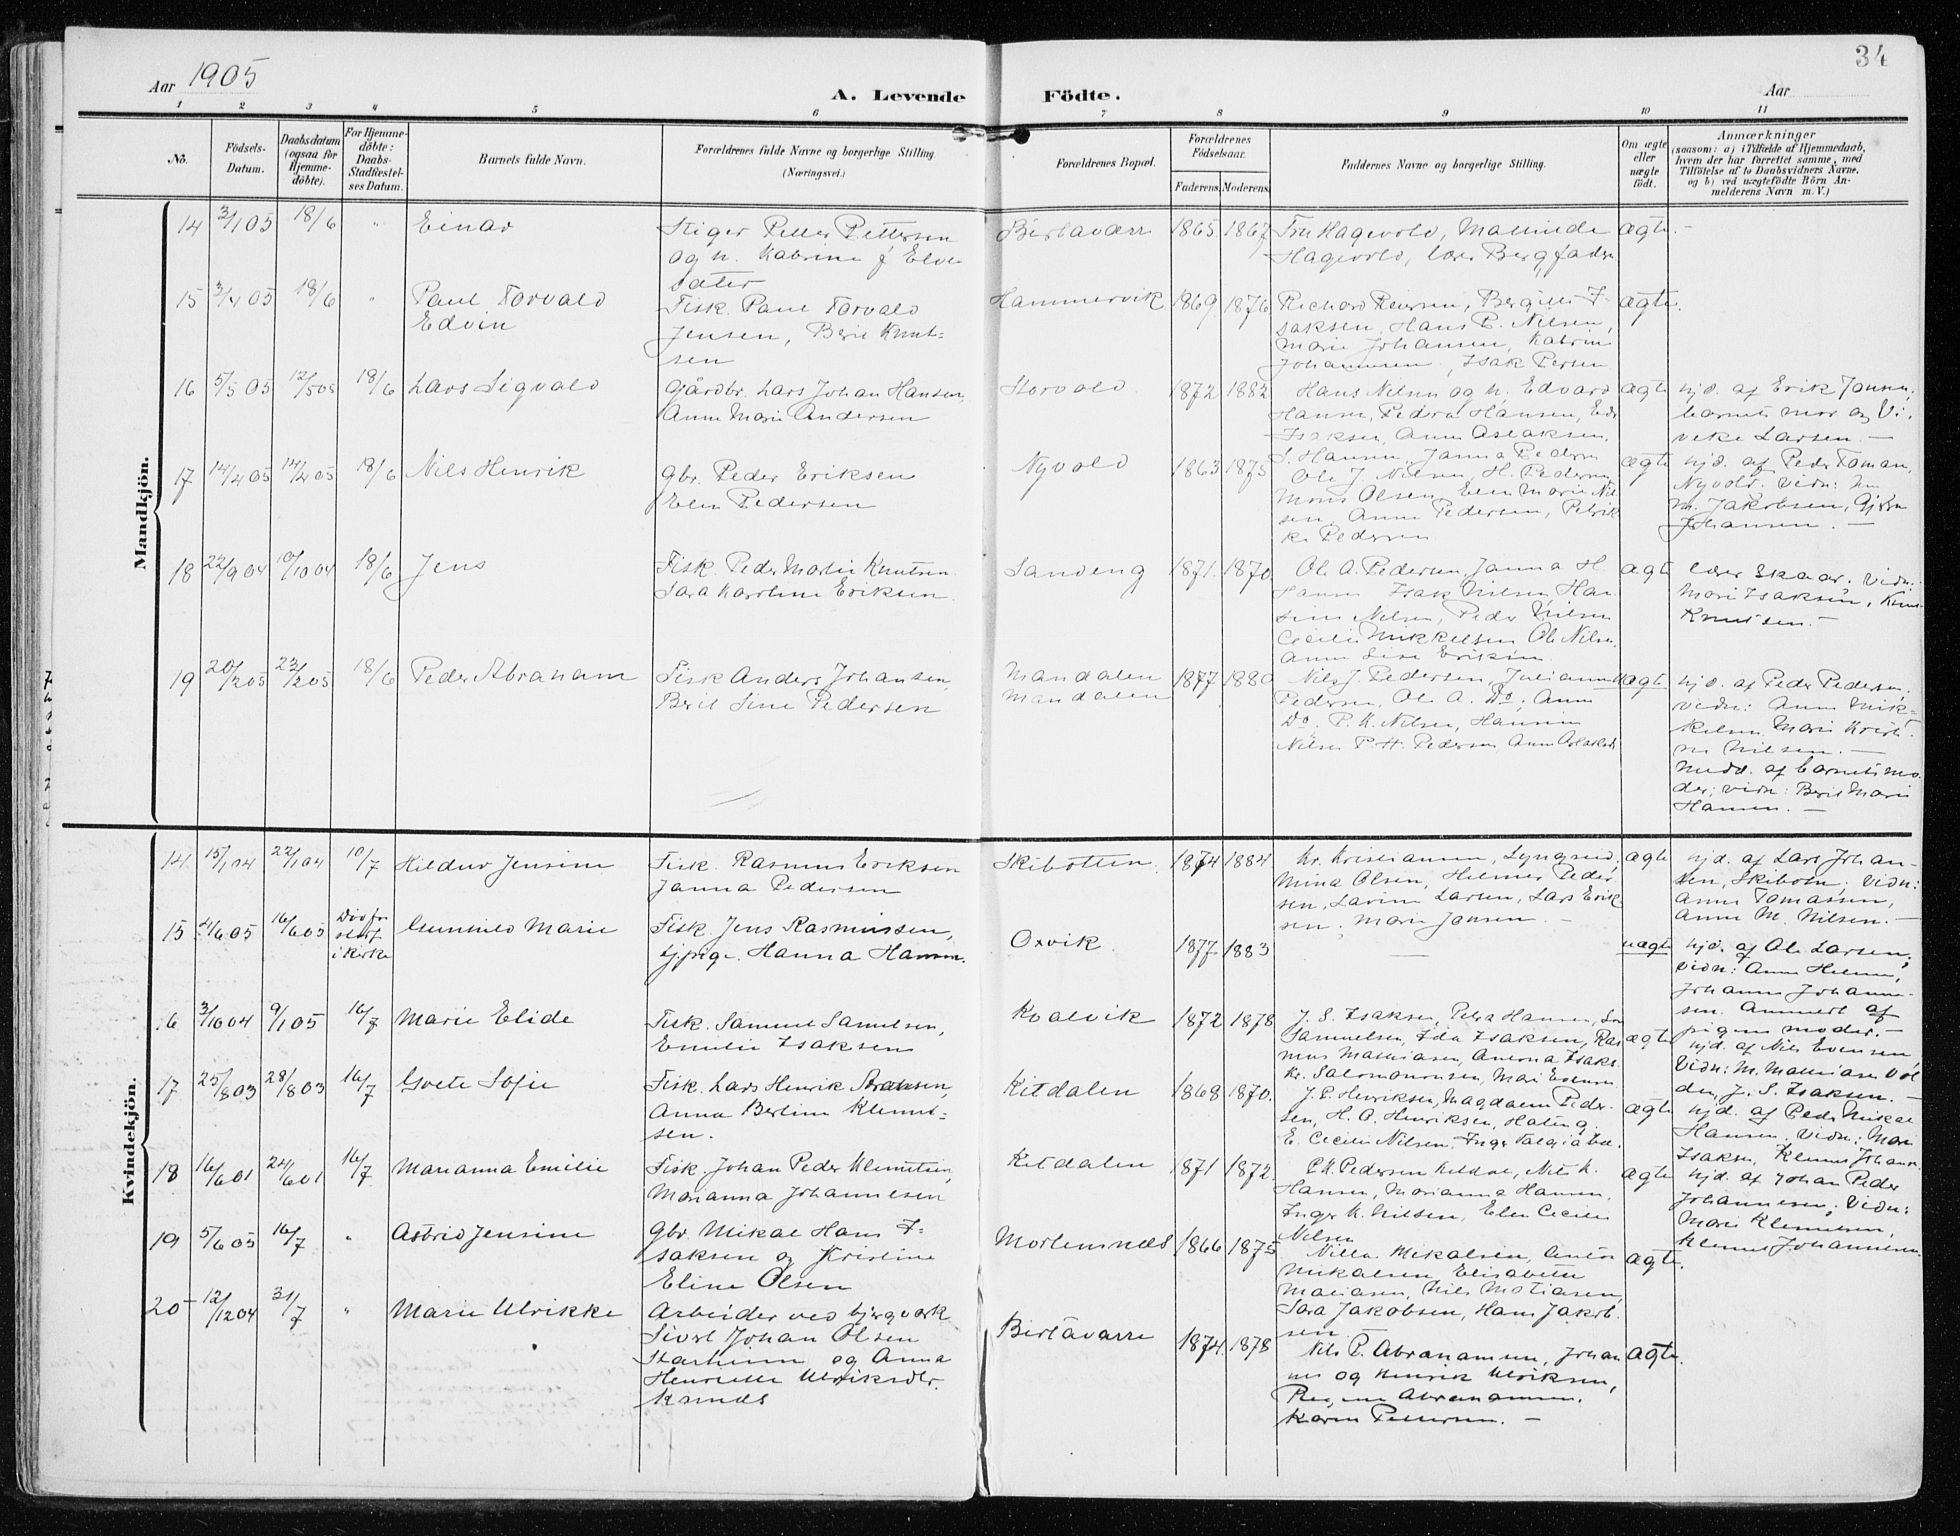 34
Aar 1905
A. Levende Födte.
Aar
1 2 3 4 5 6 7 8 9 10 11
No.
Födsels-Datum.
Daabsdatum (ogsaa for Hjemmedöbte).
For Hjemmedöbte: Daabs-Stadfæstelses Datum.
Barnets fulde Navn.
Forældrenes fulde Navne og borgerlige Stilling.
(Næringsvei.)
Forældrenes Bopæl.
Forældrenes Födselsaar.
Faderens. Moderens.
Faddernes Navne og borgerlige Stilling.
Om ægte eller uægte födt.
Anmærkninger
(saasom: a) i Tilfælde af Hjemmedaab,
hvem der har forrettet samme, med
Tilföielse af to Daabsvidners Navne,
og b) ved uægtefödte Börn An-
melderens Navn m. V.)
Mandkjön.
14 3/1 05 18/6 " Einar
Stiger Petter Pettersen
og h. Katrine f Elve
sæter
Birtavarre 1865. 1867
Fru Hagevold,
Hagevold, lærer Berg, fader
ægte.
15 3/4 05 18/6 " Paul Torvald
Edvin
Fisk. Paul Torvald
Jensen, Berit Knut-
sen
Hammervik 1869. 1876
Richard Petersen, I-
saksen, Hans P. Nilsen,
Marie Johansen, Katrine
Johannsen, Isak Persen
ægte.
16 5/5 05 12/5 05 18/6 Lars Sigvald
Gårdbr. Lars Johan Hansen,
Anne Marie Andersen
Storvold 1872 1882
Hans Nilsen og h. Edvard
Hansen, Pedra Hansen,
Isaksen, Anne Aslaksen.
S. Hansen, Janna Pedersen
ægte
hjd. af Erik Jansen,
barnets mor og Vi-
veke Larsen. —
17 14/4 05 14/4 05 18/6 Nils Henrik
gbr. Peder Eriksen
Elen Pedersen
Nyvold 1863 1875
Ole J. Nilsen, H. Pedersen
Mons Olsen, Elen Marie Nil
sen, Anne Pedersen, Petrik
ke Pedersen
ægte
hjd. af Peder Toman,
Nyvold. Vidn:
M. Jakobsen,
Johansen. —
18 22/9 04 10/10 04 18/6 Jens
Fisk. Peder Martin Knutsen
Sara Karoline Eriksen
Sandeng 1871. 1870.
Ole A. Pedersen, Janna H.
Hansen Isak Nilsen Han
sine Nilsen, Peder Nilsen
Cecilie Mikkelsen Ole Nilsen
Anne Sire Eriksen.
ægte
lærer Skaar. Vidn:
Marie Isaksen, Knut
Knutsen. —
19 20/2 05 23/2 05 18/6 Peder Abraham
Fisk Anders Johansen,
Berit Sine Pedersen
Mandalen
Mandalen
1877 1880
Nils J. Pedersen, Julianne
Pedersen, Ole A. Do, Anne
Do. P. K. Nilsen, Hannine
Nilsen P. H. Pedersen Anne Aslaksen
uægte
hjd. af Peder Pedersen,
vidn: Anne Mik-
kelsen Marie Kristi-
ne Nilsen. —
Medd. af barnets mo-
der; vidn: Berit Marie
Hansen. —
Kvindekjön.
14 15/1 04 22/1 04 10/7 Hildur Jensine
Fisk. Rasmus Eriksen
Janna Pedersen
Skibotten. 1874 1884
Kr. Kristiansen, Lyngseid,
Mina Olsen, Helmer Peder
sen, Lavine Larsen, Lars Erik
sen, Marie Jansen. —
ægte
hjd. af Lars Johan-
sen, Skibotn, Vidn:
Anne Tomassen,
Anne M. Nilsen. —
15 4/6 05 16/6 05
i kirke
Gunnild Marie
Fisk. Jens Rasmussen,
tj.pige. Hanna Hansen.
Oxvik. 1877. 1883 —
uægte
hjd. af Ole Larsen,
Vidn: Anne Helene,
Johanne Johanne-
sen. Anmeldt af
pigens moder. —
16 3/10 04 9/1 05 16/7 Marie Elide
Fisk. Samuel Samuelsen,
Emilie Isaksen
Kvalvik 1872 1878
J. S. Isaksen, Petra Hansen,
Samuelsen, Ida Isaksen, Ras
mus Mathiasen, Isaks
Kr. Salomonsen, Mari Evensen
ægte
hjd. af Nils Evensen,
Vidn: M. Mathiasen
J. S. Isaksen. —
17 25/8 03 28/8 03 16/7 Grete Sofie
Fisk. Lars Henrik
Anna Bertine Klemet-
sen.
Kitdalen 1868 1870.
J. P. Henriksen, Magdalene Peder-
sen, H. A. Henriksen,
E. Cecilie Nilsen, Inger
ægte
hjd. af Peder Mikal
Hansen, Vidn: Mari
Isaksen, Klemet Johan
18 16/6 01 24/6 01 16/7 Marianna Emilie
Fisk. Johan Peder Klemetsen,
Marianna Johannesen
Kitdalen 1871 1872.
P. K. Pedersen Kitdal, Nils K.
Hansen, Marianna Hansen,
Inger K. Nilsen, Elen Cecilie
Nilsen
ægte
hjd. af Johan Peder
Johannesen, Vidn:
Marie Klemetsen,
Klemet Johannesen
19 5/6 05 16/7 " Astrid Jensine
gbr. Mikal Hans I-
saksen og Kristine
Eline Olsen
Mortensnæs 1866 1875
Nilla Mikalsen, Anton
Mikalsen, Elisabeth
Matiasen, Nils Matiasen,
Sara Jakobsen, Hans Jakob-
sen
ægte.
20 12/12 04 31/7 " Marie Ulrikke
Arbeider ved bjergværk
Sivert Johan Olsen
Starheim og Anna
Henriette Ulriksdtr.
Birtavarre 1874. 1878
Nils P. Abrahamsen, Johan
nes og Henrik Ulriksen,
Regine Abrahamsen.
Karen Pettersen. —
ægte.